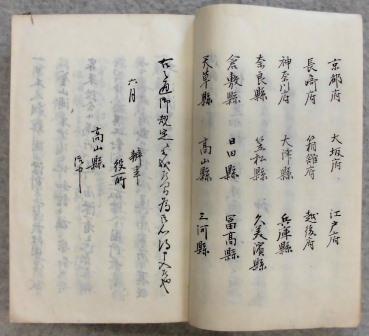 京都府 大坂府 江戸府
長崎府 箱館府 越後府
神奈川府 大津縣 兵庫縣
奈良縣 笠松縣 久美濱縣
倉敷縣 日田縣 冨高縣
天草縣 高山縣 三河縣
右之通御規定
六月 辨事
役所
高山縣